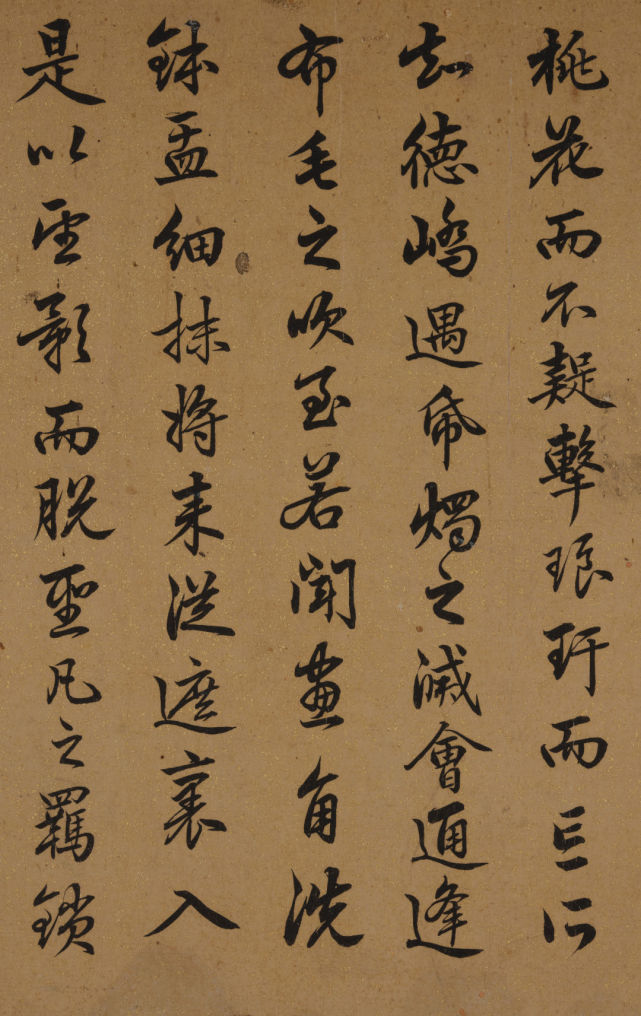 桃花而不疑擊琅玕而亡所
知德嶠遇帋燭之滅會通逢
布毛之吹至若聞畫角洗
鉢盂細抹將來從遮裏入
是以望影而脫聖凡之羈鎖